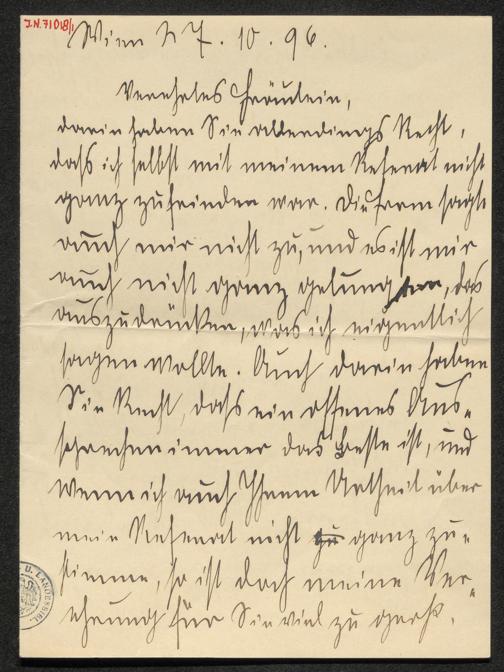 I.N. 71018/1
Wien 27. 10. 96.
Verehrtes Fräulein,
darin haben Sie allerdings Recht,
dass ich selbst mit meinem Referat nicht
ganz zufrieden war. Die Form sagte
auch mir nicht zu, und es ist mir
auch nicht ganz gelungen, das
auszudrücken, was ich eigentlich
sagen wollte. Auch darin haben
Sie Recht, dass ein offenes Aus-
sprechen immer das Beste ist, und
wenn ich auch Ihrem Urtheil über
mein Referat nicht ganz zu-
stimme, so ist doch meine Ver-
ehrung für Sie viel zu groß,
U. LANDESBIBL.